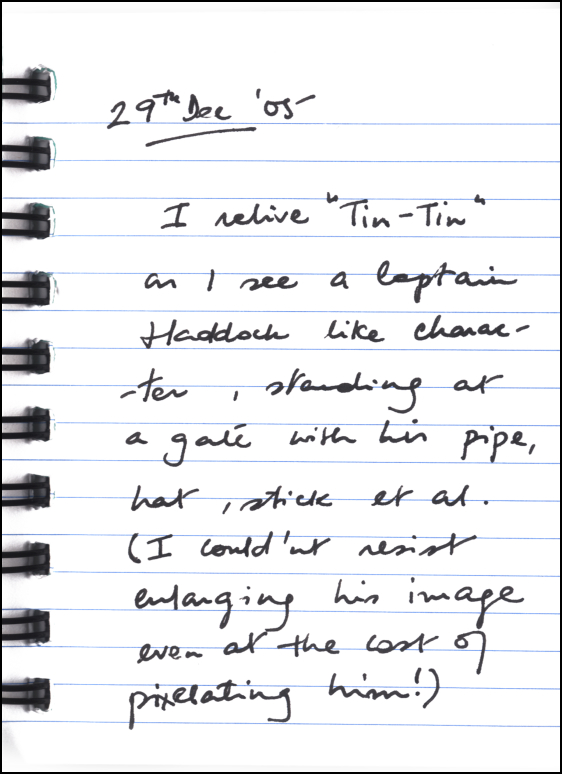 29th Dec '05
I relive "Tin-Tin"
as I see a Captain
Haddock like charac-
-ter, standing at
a gate with his pipe,
hat, stick et al.
(I could'nt resist
enlarging his image
even at the cost of
pixelating him!)